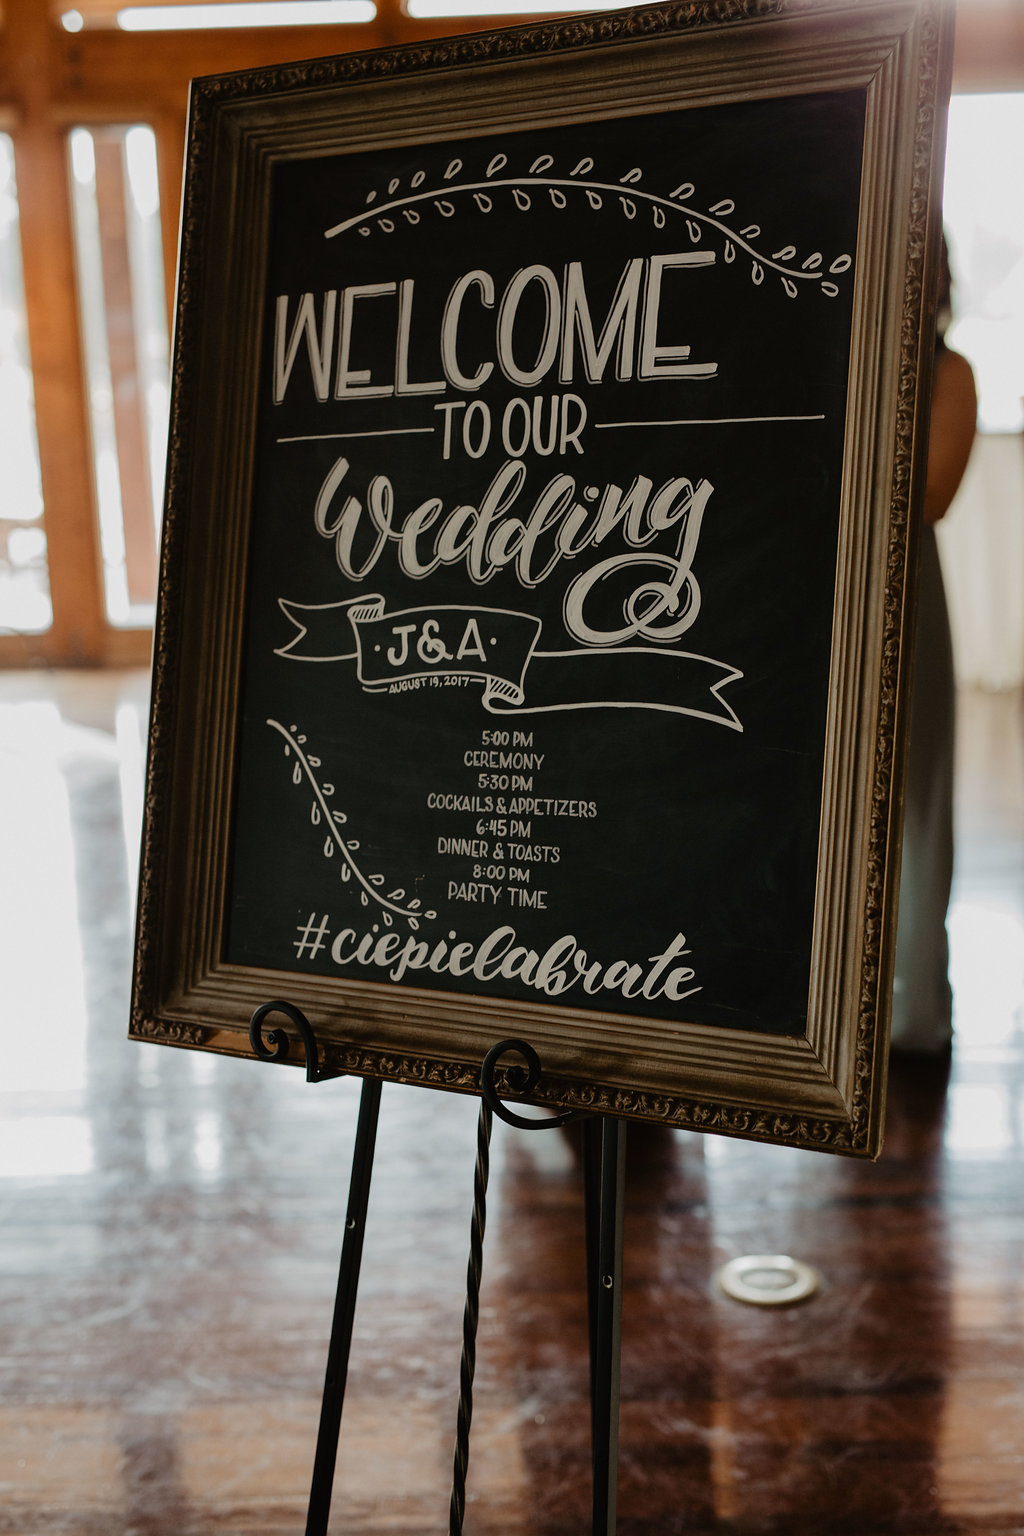 WELCOME
TO OUR
Wedding
·J&A·
AUGUST 19, 2017
5:00 PM
CEREMONY
5:30 PM
COCKAILS & APPETIZERS
6:45 PM
DINNER & TOASTS
8:00 PM
PARTY TIME
#ciepielabrate